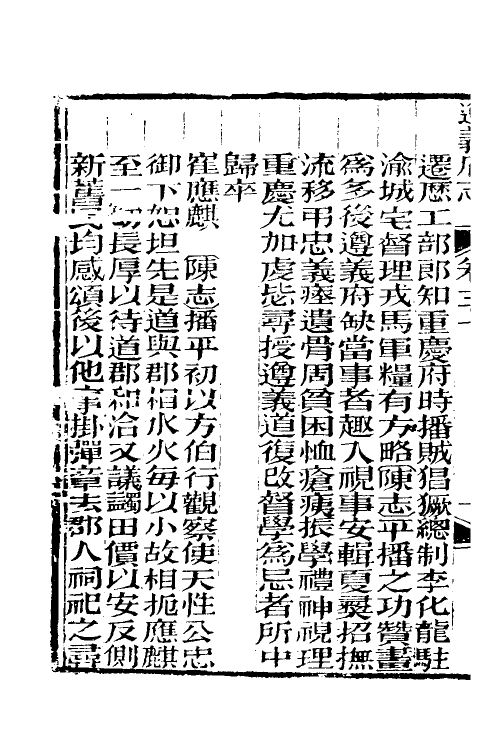 遵義府志 卷三十
遷歷工部郎知重慶府時播賊猖獗總制李化龍駐
渝城宅督理戎馬軍糧有方略陳志平播之功贊畫
為多後遵義府缺當事者趣入視事安輯夏㚇招撫
流移弔忠義瘞遺骨周貧困恤瘡痍振學禮神視理
重慶尤加虔毖尋授遵義道復改督學為忌者所中
歸卒
崔應麒 陳志播平初以方伯行觀察使天性公忠
御下恕坦先是道與郡相水火每以小故相扼應麒
至一切長厚以待道郡和洽又議蠲田價以安反側
新舊民均感頌後以他事掛彈章去郡人祠祀之尋